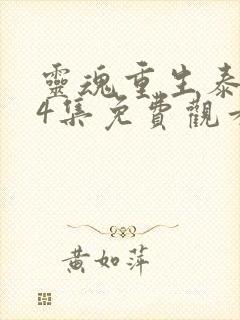 靈魂重生泰
4集免費觀
黃如萍